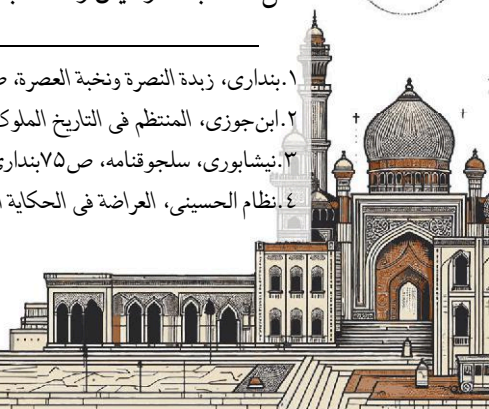 ۱.بنداری، زبدة النصرة ونخبة العصرة،
۲.ابن‌جوزی، المنتظم فی التاریخ الملوک
۳.نیشابوری، سلجوقنامه، ص۷۵بنداری
٤.نظام الحسینی، العراضة فی الحکایة